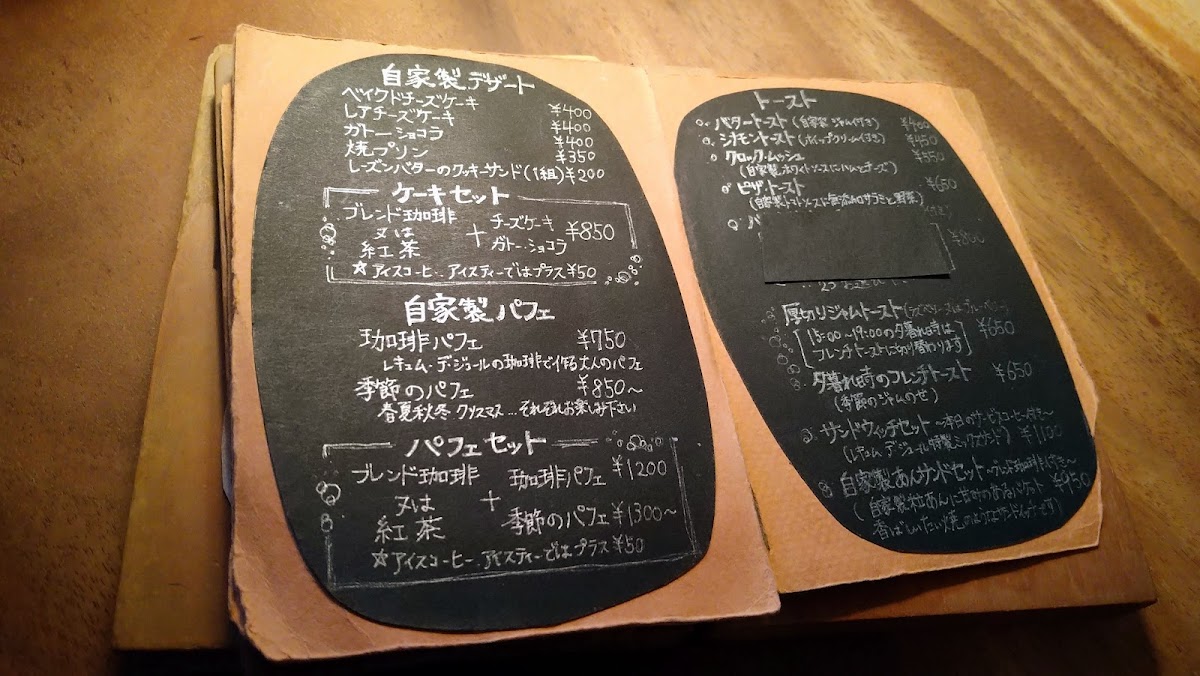 自家製デザート
ベイクドチーズケーキ ¥400
レアチーズケーキ ¥400
ガトーショコラ ¥400
焼プリン ¥350
レーズンバターのクッキーサンド(1組)¥200
ケーキセット
ブレンド珈琲 チーズケーキ
又は + ¥850
紅茶 ガトーショコラ
☆アイスコーヒー、アイスティーではプラス¥50
自家製パフェ
珈琲パフェ ¥750
レキュム・デ・ジュールの珈琲で作る大人のパフェ
季節のパフェ ¥850~
春夏秋冬 クリスマス…それぞれお楽しみ下さい
パフェセット
ブレンド珈琲 珈琲パフェ ¥1200
又は +
紅茶 季節のパフェ ¥1300~
☆アイスコーヒー、アイスティーではプラス¥50
トースト
バタートースト(自家製ジャム付き) ¥400
シナモントースト(ホイップクリーム付き) ¥450
クロック・ムッシュ ¥550
(自家製ホワイトソースにハムとチーズ)
ピザ・トースト ¥650
(自家製トマトソースに無添加サラミと野菜)
¥800
厚切りジャムトースト ¥650
15:00~19:00の夕暮れ時は
フレンチトーストに切り替わります
夕暮れ時のフレンチトースト ¥650
(季節のジャムのせ)
サンドウィッチセット ~本日のサービスコーヒー付き~
(レキュム デ ジュール特製ミックスサンド) ¥1100
自家製あんサンドセット ~ブレンド珈琲付き~
(自家製粒あんに甘みのあるバケット ¥950